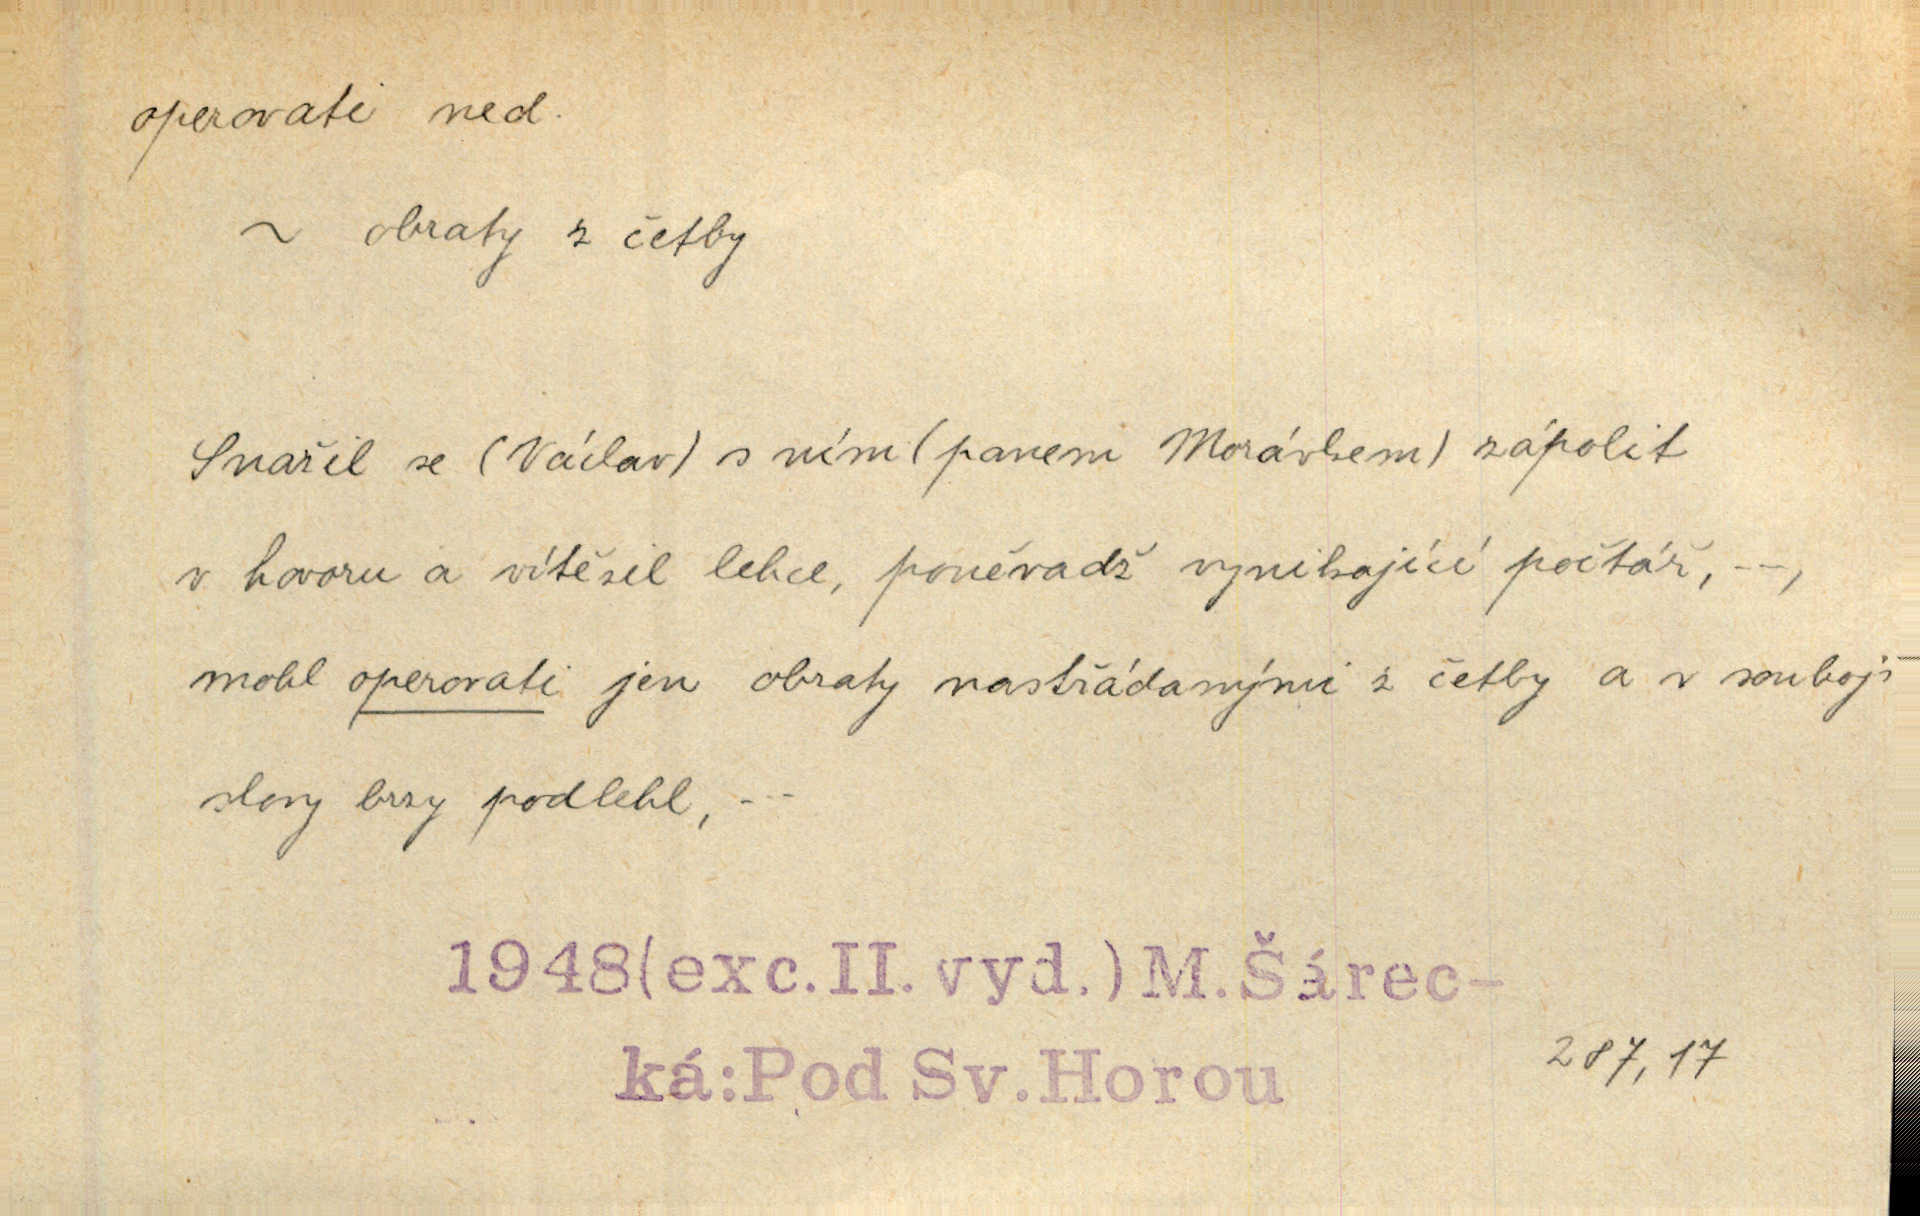 operovati ned.
~ obraty z četby
Snažil se (Václav) s ním (panem Morávkem) zápolit
v hovoru a vítěsil lehce, poněvadž vynikající počtář, --,
mohl operovati jen obraty nastřádanými z četby a v souboji
slovy brzy podlehl, ---
1948(exc.II.vyd.)M.Šárec-
ká:Pod Sv.Horou
287,17